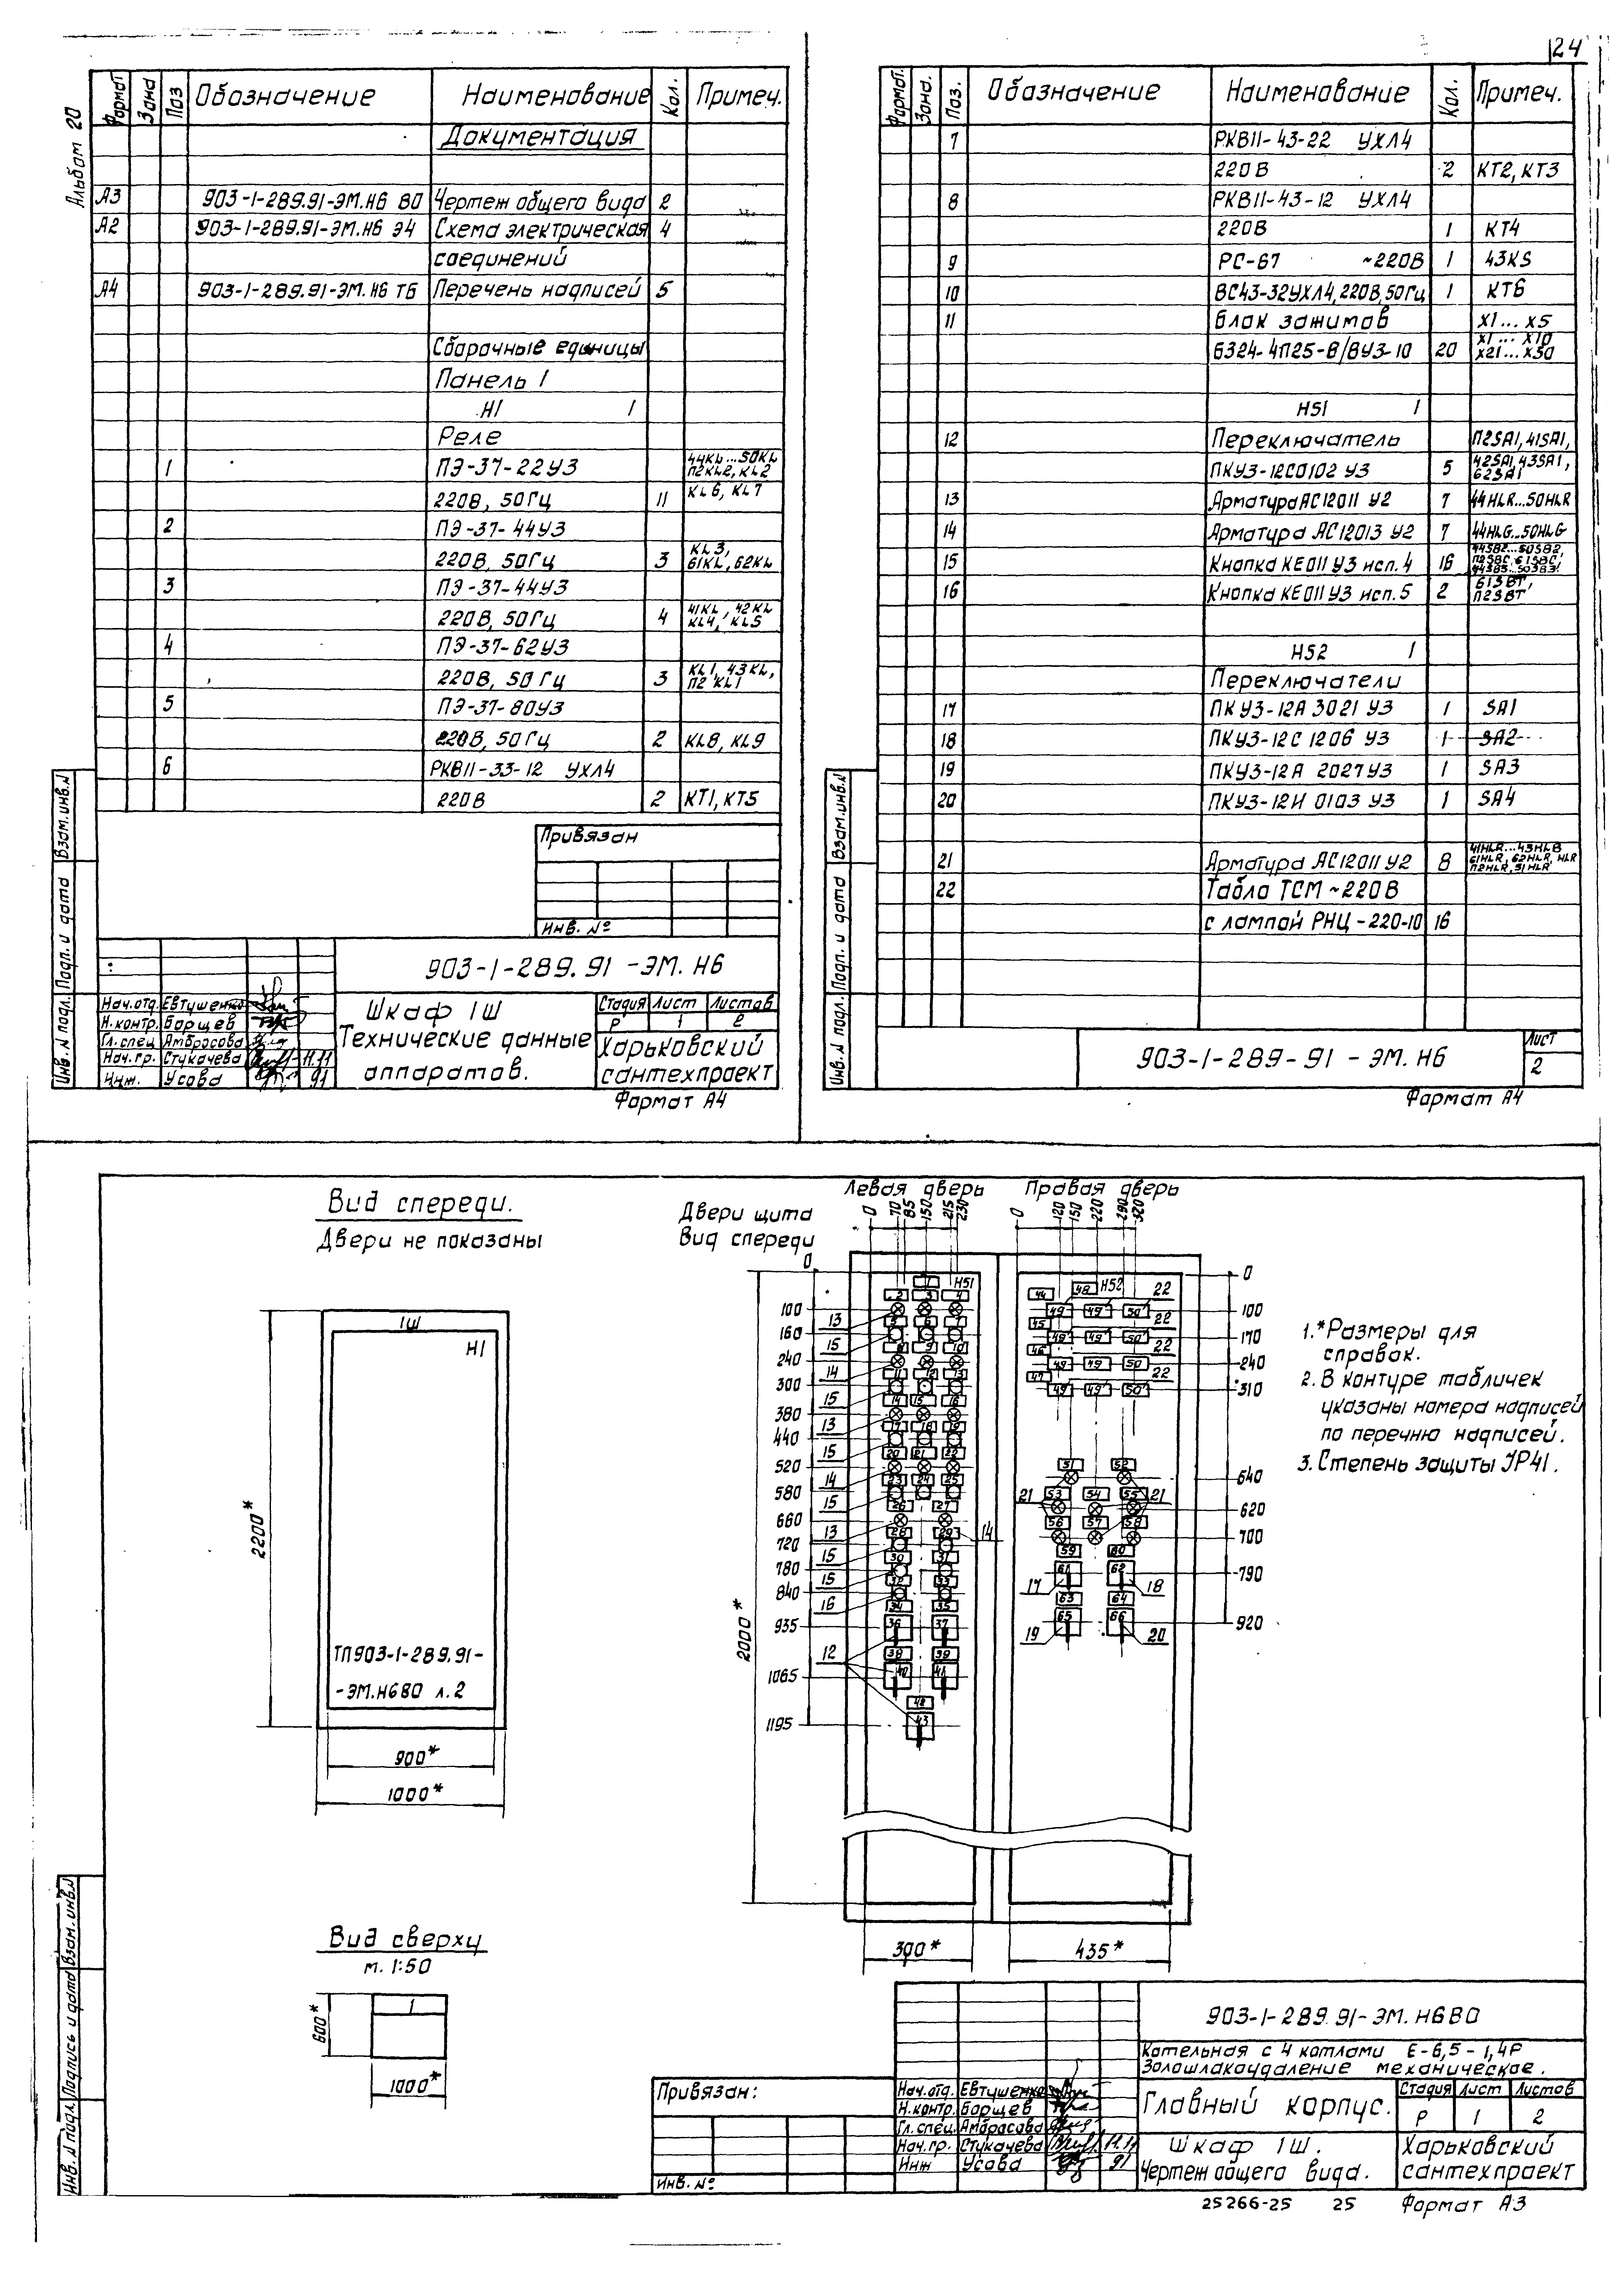 24
Альбом 20
Формат Зона Поз Обозначение Наименование Кол. Примеч.
Документация
А3 903-1-289.91-ЭМ.Н6 ВО Чертеж общего вида 2
А2 903-1-289.91-ЭМ.Н6 Э4 Схема электрическая 4
соединений
А4 903-1-289.91-ЭМ.Н6 ТБ Перечень надписей 5
Сборочные единицы
Панель 1
Н1 1
Реле
1 ПЭ-37-22У3 44KL...50KL
П2KL2, KL2
220В, 50Гц 11 KL6, KL7
2 ПЭ-37-44У3
220В, 50Гц 3 KL3,
61KL, 62KL
3 ПЭ-37-44У3
220В, 50Гц 4 41KL, 42KL
KL4, KL5
4 ПЭ-37-62У3
220В, 50Гц 3 KL1, 43KL,
П2KL1
5 ПЭ-37-80У3
220В, 50Гц 2 KL8, KL9
6 РКВ11-33-12 УХЛ4
220В 2 КТ1, КТ5
Привязан
Инв. №
903-1-289.91-ЭМ.Н6
Нач.отд. Евтушенко
Н.контр. Борщев
Гл.спец Амбросова
Нач.гр. Стукачева 11.11
Инж. Усова 91
Шкаф 1Ш
Технические данные
аппаратов.
Стадия Лист Листов
Р 1 2
Харьковский
сантехпроект
Формат А4
Инв.№ подл. Подп. и дата Взам.инв.№
Формат. Зона. Поз. Обозначение Наименование Кол. Примеч.
7 РКВ11-43-22 УХЛ4
220В 2 КТ2, КТ3
8 РКВ11-43-12 УХЛ4
220В 1 КТ4
9 РС-67 ~220В 1 43KS
10 ВС43-32УХЛ4, 220В, 50Гц 1 КТ6
11 Блок зажимов Х1...Х5
Б324-4П25-В/ВУ3-10 20 Х1...Х10
Х21...Х30
Н51 1
12 Переключатель П2SA1, 41SA1,
ПКУ3-12С0102 У3 5 42SA1, 43SA1,
62SA1
13 Арматура АС12011 У2 7 44HLR...50HLR
14 Арматура АС12013 У2 7 44HLG...50HLG
15 Кнопка КЕ011 У3 исп.4 16 44SB2...50SB2,
П2SBC, 61SBC,
44SB3...50SB3
16 Кнопка КЕ011 У3 исп.5 2 61SBT,
П2SBT
Н52 1
Переключатели
17 ПКУ3-12А 3021 У3 1 SA1
18 ПКУ3-12С 1206 У3 1 SA2
19 ПКУ3-12А 2027 У3 1 SA3
20 ПКУ3-12И 0103 У3 1 SA4
21 Арматура АС12011 У2 8 41HLR...43HLR
61HLR, 62HLR, HLR
П2HLR, 51HLR
22 Табло ТСМ ~220В
с лампой РНЦ-220-10 16
903-1-289-91-ЭМ.Н6
Лист
2
Формат А4
Инв.№ подл. Подп. и дата Взам.инв.№
Вид спереди.
Двери не показаны
1Ш
Н1
ТП903-1-289.91-
-ЭМ.Н6ВО л.2
2200*
900*
1000*
Вид сверху
м. 1:50
1
600*
1000*
Двери щита
Вид спереди
Левая дверь Правая дверь
0 70 85 150 215 230
0 120 150 220 290 320
0
100
160
240
300
380
440
520
580
660
720
780
840
935
1065
1195
2000*
13
15
14
15
13
15
14
15
13
15
15
16
12
14
1 Н51
2 3 4
5 6 7
8 9 10
11 12 13
14 15 16
17 18 19
20 21 22
23 24 25
26 27
28 29
30 31
32 33
34 35
36 37
38 39
40 41
42
43
48 Н52
44
49 49 50
45
49 49 50
46
49 49 50
47
49 49 50
51 52
53 54 55
56 57 58
59 60
61 62
63 64
65 66
22
22
22
22
21 21
17 18
19 20
0
100
170
240
310
640
620
700
790
920
300*
435*
1.*Размеры для
справок.
2. В контуре табличек
указаны номера надписей
по перечню надписей.
3. Степень защиты JP41.
903-1-289.91-ЭМ.Н6ВО
Котельная с 4 котлами Е-6,5-1,4Р
Золошлакоудаление механическое.
Привязан:
Инв. №
Нач.отд. Евтушенко
Н.контр. Борщев
Гл.спец. Амбросова
Нач.гр. Стукачева 11.11
Инж Усова 91
Главный корпус.
Стадия Лист Листов
Р 1 2
Шкаф 1Ш.
Чертеж общего вида.
Харьковский
сантехпроект
25266-25 25 Формат А3
Инв.№ подл. Подпись и дата Взам.инв.№